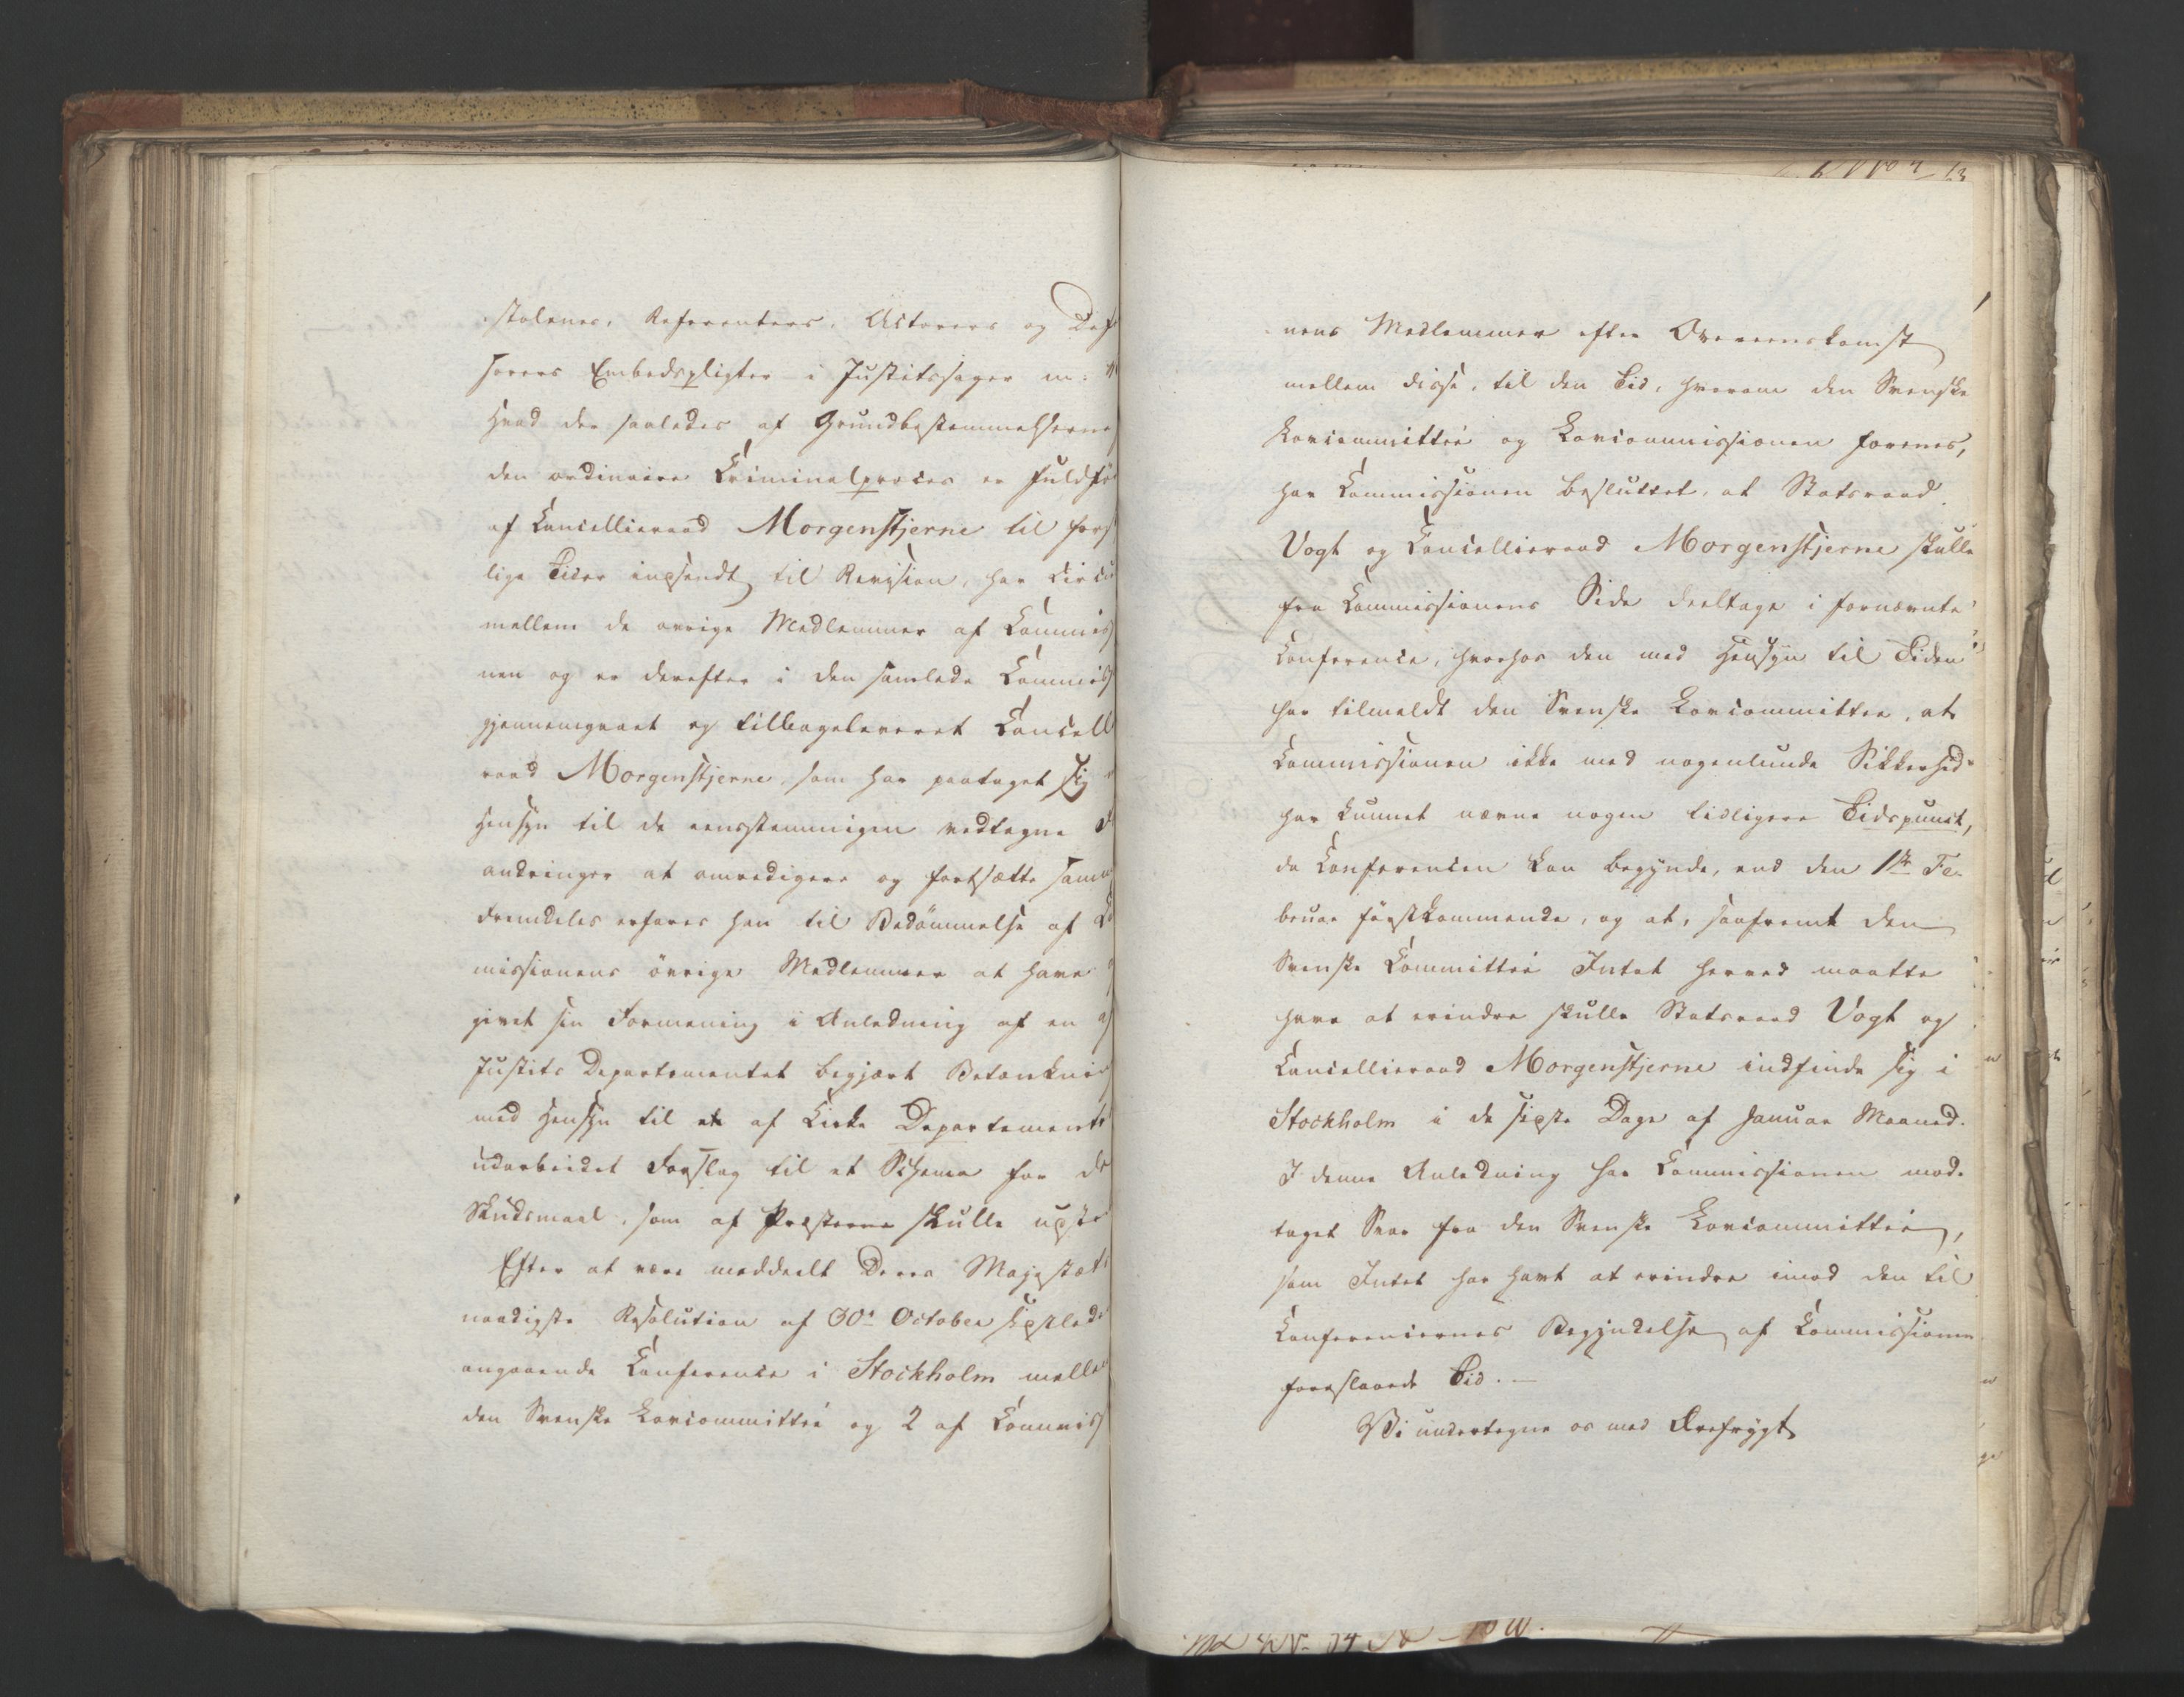 stolenes, Referenters, Actorers og Def
sorers Embedspligter i Justitssager m:
Hvad der saaledes af Grundbestemmelserne
den ordinaire Criminalproces er fuldfö
af Cancellieraad Morgenstjerne til forsk
lige Tider indsendt til Revision, har circu
mellem de øvrige Medlemmer af Commis
nen og er derefter i den samlede Commis
gjennemgaaet og tilbageleveret Cancell
raad Morgenstjerne, som har paataget sig
Hensyn til de eenstemmigen vedtagne
andringer at omredigere og fortsætte samme
Fremdeles erfares han til Bedömmelse af Co
missionens övrige Medlemmer at have
givet sin Formening i Anledning af en af
Justits Departementet begjært Betænkni
med Hensyn til et af Kirke Departemente
udarbeidet Forslag til et Schema for de
Skudsmaal, som af Præsterne skulle udste
Efter at være meddeelt Deres Majestæts
naadigste Resolution af 30. October sidstled
angaaende Conference i Stockholm melle
den Svenske Lovcommittée og 2 af Commis
nens Medlemmer efter Overeenskomst
mellem disse, til den Tid, hvorom den Svenske
Lovcommittée og Lovcommissionen forenes,
har Commissionen besluttet, at Statsraad
Vogt og Cancellieraad Morgenstjerne skulle
fra Commissionens Side deeltage i fornævnte
Conference, hvorhos den med Hensyn til Tiden
har tilmeldt den Svenske Lovcommittee, at
Commissionen ikke med nogenlunde Sikkerhed
har kunnet nævne nogen tidligere Tidspunct,
da Conferencen kan begynde, end den 1ste Fe-
bruar förstkommende, og at, saafremt den
Svenske Committée Intet herved maatte
have at erindre skulle Statsraad Vogt og
Cancellieraad Morgenstjerne indfinde sig i
Stockholm i de sidste Dage af Januar Maaned.
I denne Anledning har Commissionen mod-
taget Svar fra den Svenske Lovcommittée,
som Intet har havt at erindre imod den til
Conferencernes Begyndelse af Commissionen
foreslaaede Tid. —
Vi undertegne os med Ærefrygt